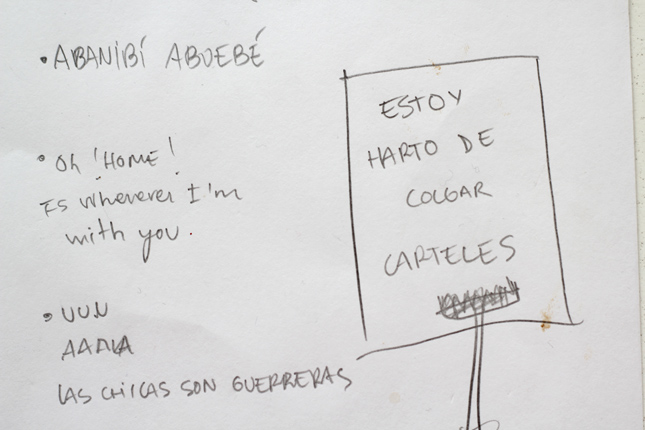 • ABANIBÍ ABOEBÉ
• Oh ! HOME !
Es wherever I'm
with you.
• UUN
AAAAA
LAS CHICAS SON GUERRERAS
ESTOY
HARTO DE
COLGAR
CARTELES